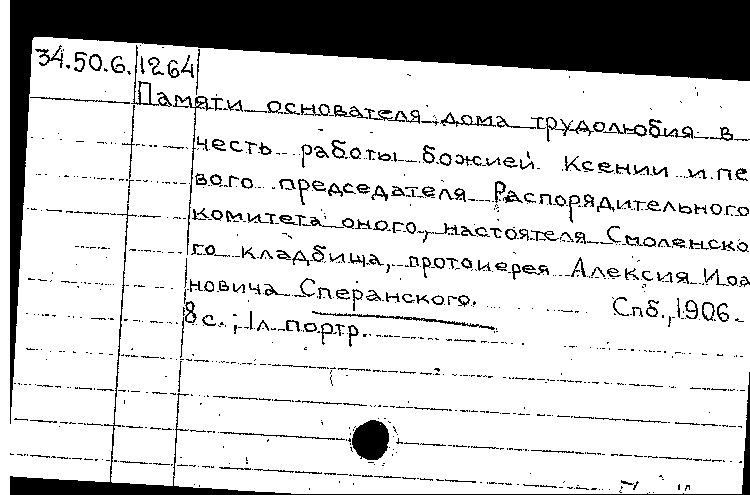 34.50.6. 1264
Памяти основателя дома трудолюбия в
честь работы божией Ксении и пе
вого председателя Распорядительного
комитета оного, настоятеля Смоленско
го кладбища, протоиерея Алексия Иоа
новича Сперанского. Спб., 1906.
8 с.; 1л портр.